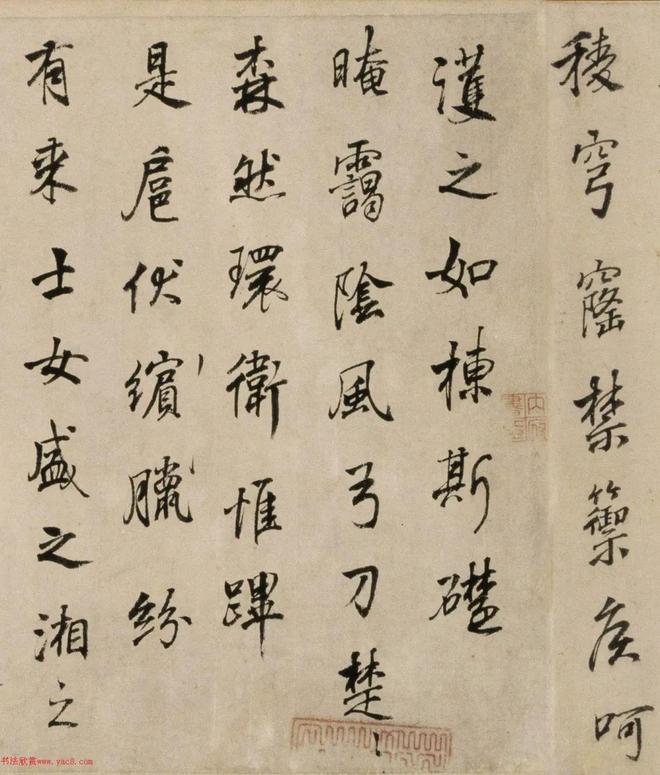 稜穹窿禁籞矦呵
護之如棟斯礎
晻靄陰風弓刀楚〻
森然環衛惟蹕
是扈伏繽臘紛
有来士女盛之湘之
内府
書印
书法欣赏www.yac8.com